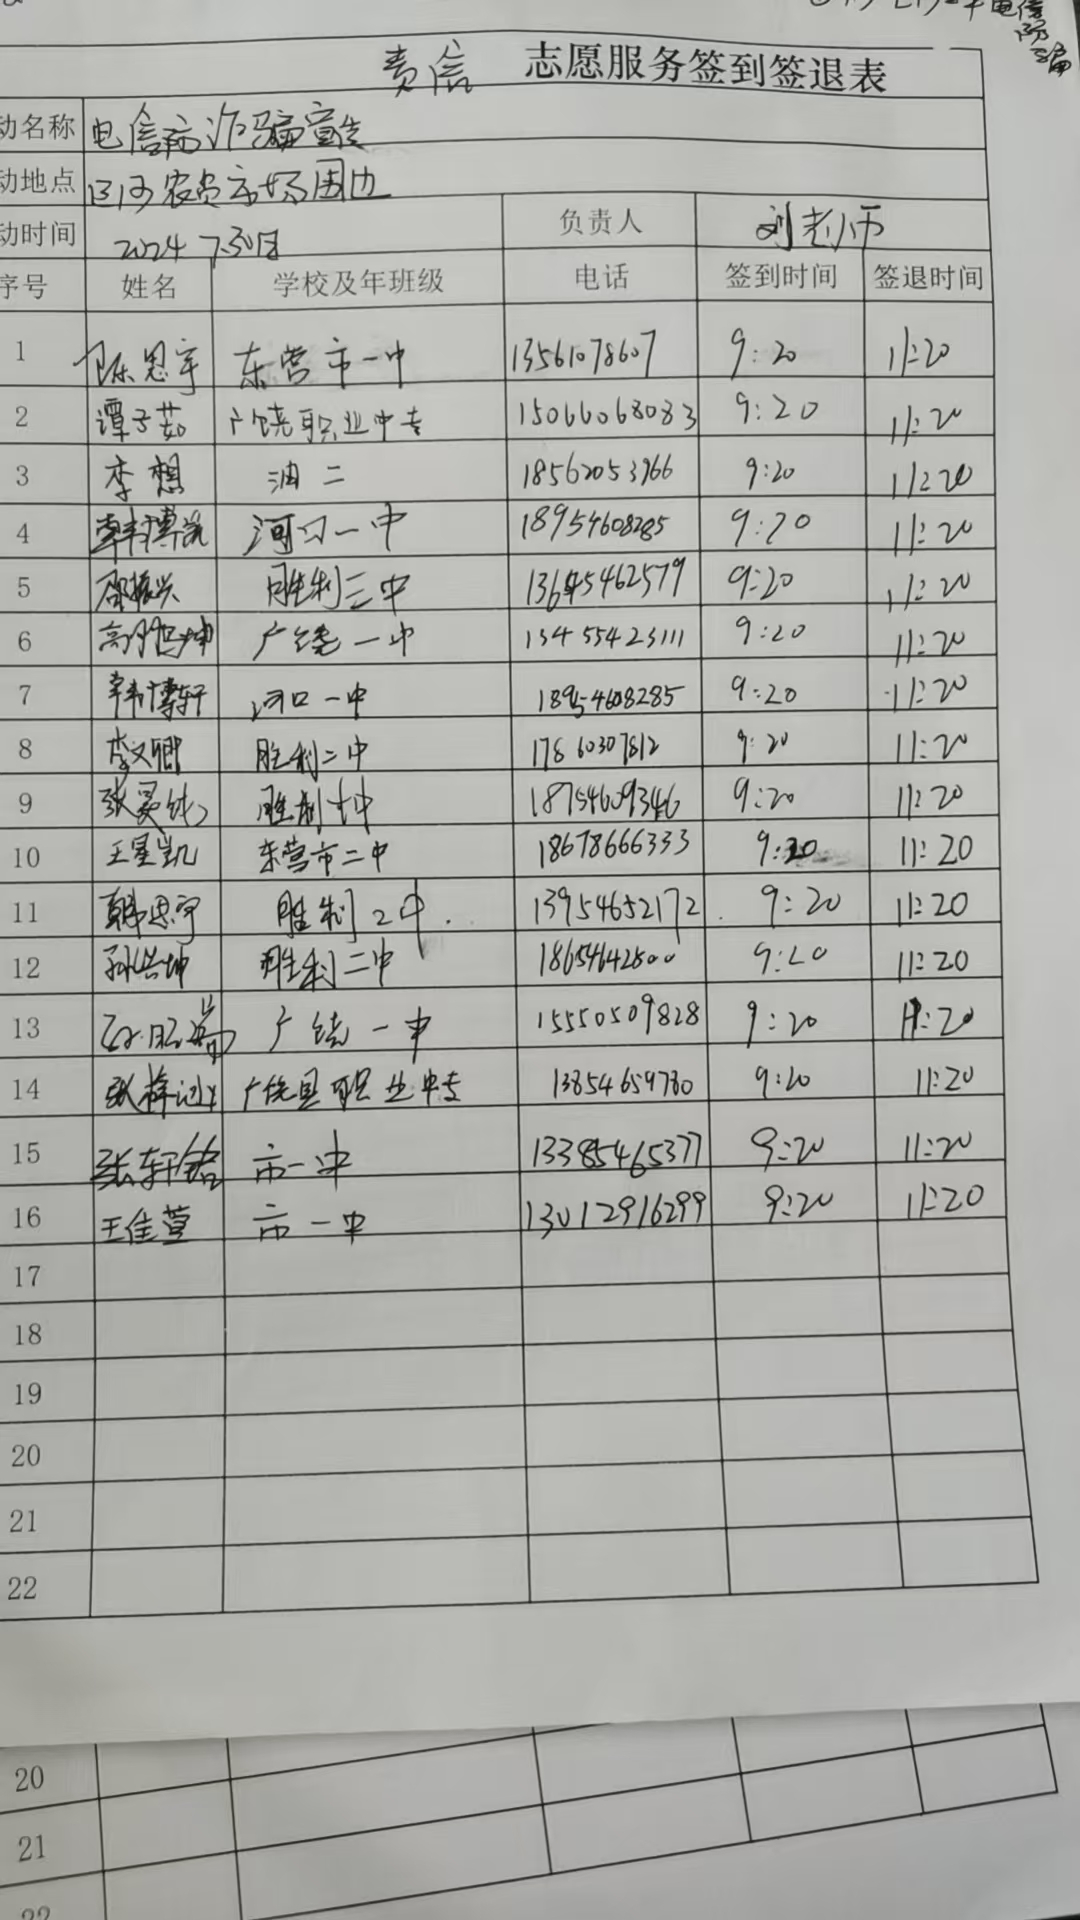 责信 志愿服务签到签退表
动名称 电信防诈骗宣传
动地点 农贸市场周边
动时间 2024 7.30日 负责人 刘老师
序号 姓名 学校及年班级 电话 签到时间 签退时间
1 陈思宇 东营市一中 13561078607 9:20 11:20
2 谭子茹 广饶职业中专 15066068083 9:20 11:20
3 李想 油二 18562053966 9:20 11:20
4 韩博凯 河口一中 18954608285 9:20 11:20
5 邵振兴 胜利三中 13645462579 9:20 11:20
6 广饶一中 13455423111 9:20 11:20
7 韩博轩 河口一中 18954608285 9:20 11:20
8 李文卿 胜利二中 17860307812 9:20 11:20
9 张 胜利十中 18754609346 9:20 11:20
10 王星凯 东营市二中 18678666333 9:20 11:20
11 韩思宇 胜利2中. 13954652172. 9:20 11:20
12 孙洪坤 胜利二中 18654642500 9:20 11:20
13 广饶一中 15550509828 9:20 11:20
14 张 广饶县职业中专 13854659780 9:20 11:20
15 张轩铭 市一中 13385465377 9:20 11:20
16 王佳萱 市一中 13012916299 9:20 11:20
17
18
19
20
21
22
20
21
22